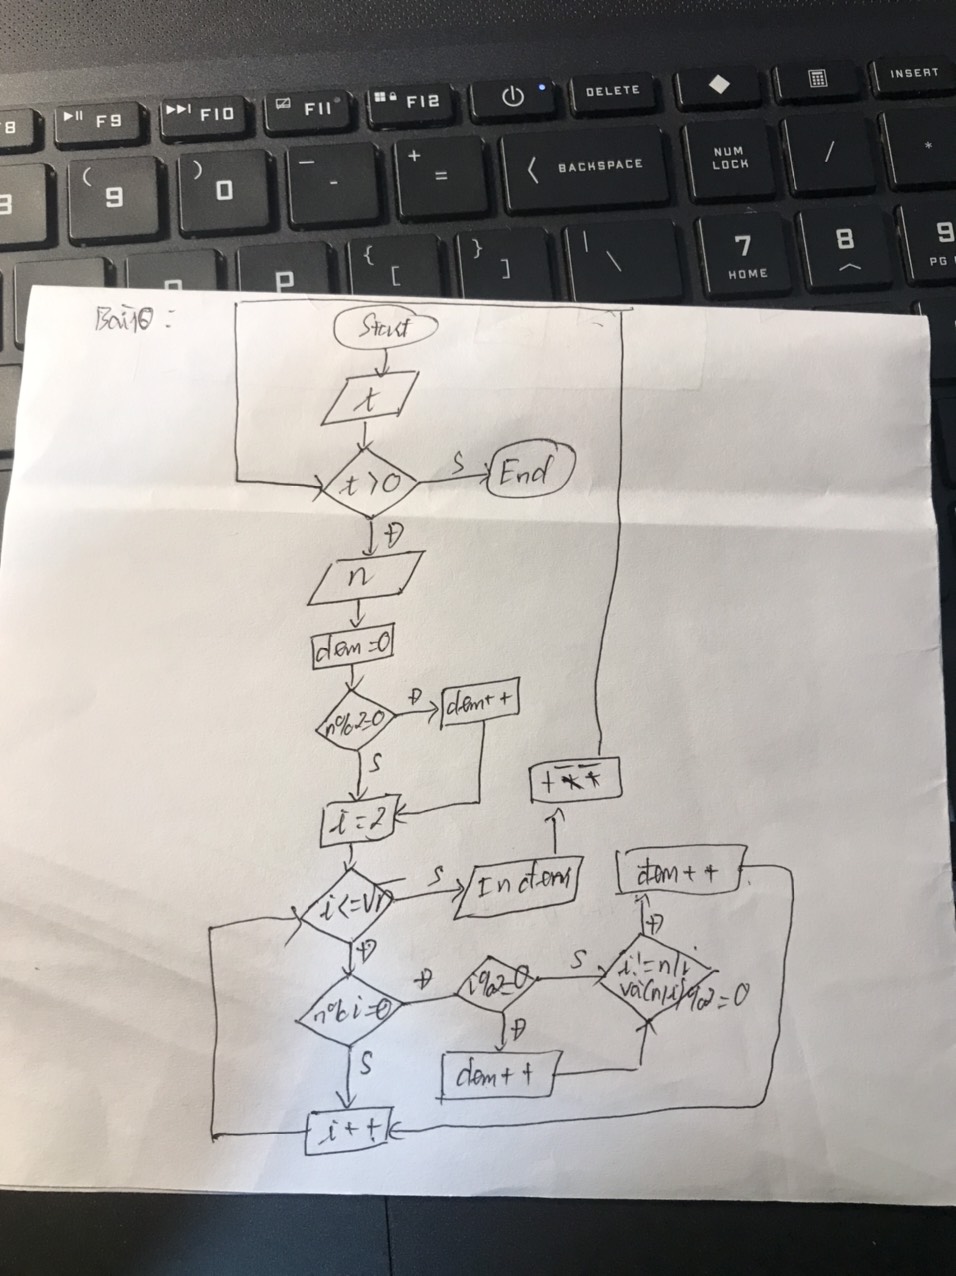 F8
F9
F10
F11
F12
DELETE
INSERT
(
9
)
0
-
+
=
BACKSPACE
NUM
LOCK
/
*
P
{
[
}
]
|
\
7
HOME
8
9
PG
Bài10:
Start
t
t>0
S
End
Đ
n
dem=0
n%2=0
Đ
dem++
S
i=2
i<=√n
S
In dem
Đ
dem++
n%i=0
Đ
i%2=0
S
i!=n/i
và(n/i)%2=0
Đ
Đ
dem++
S
i++